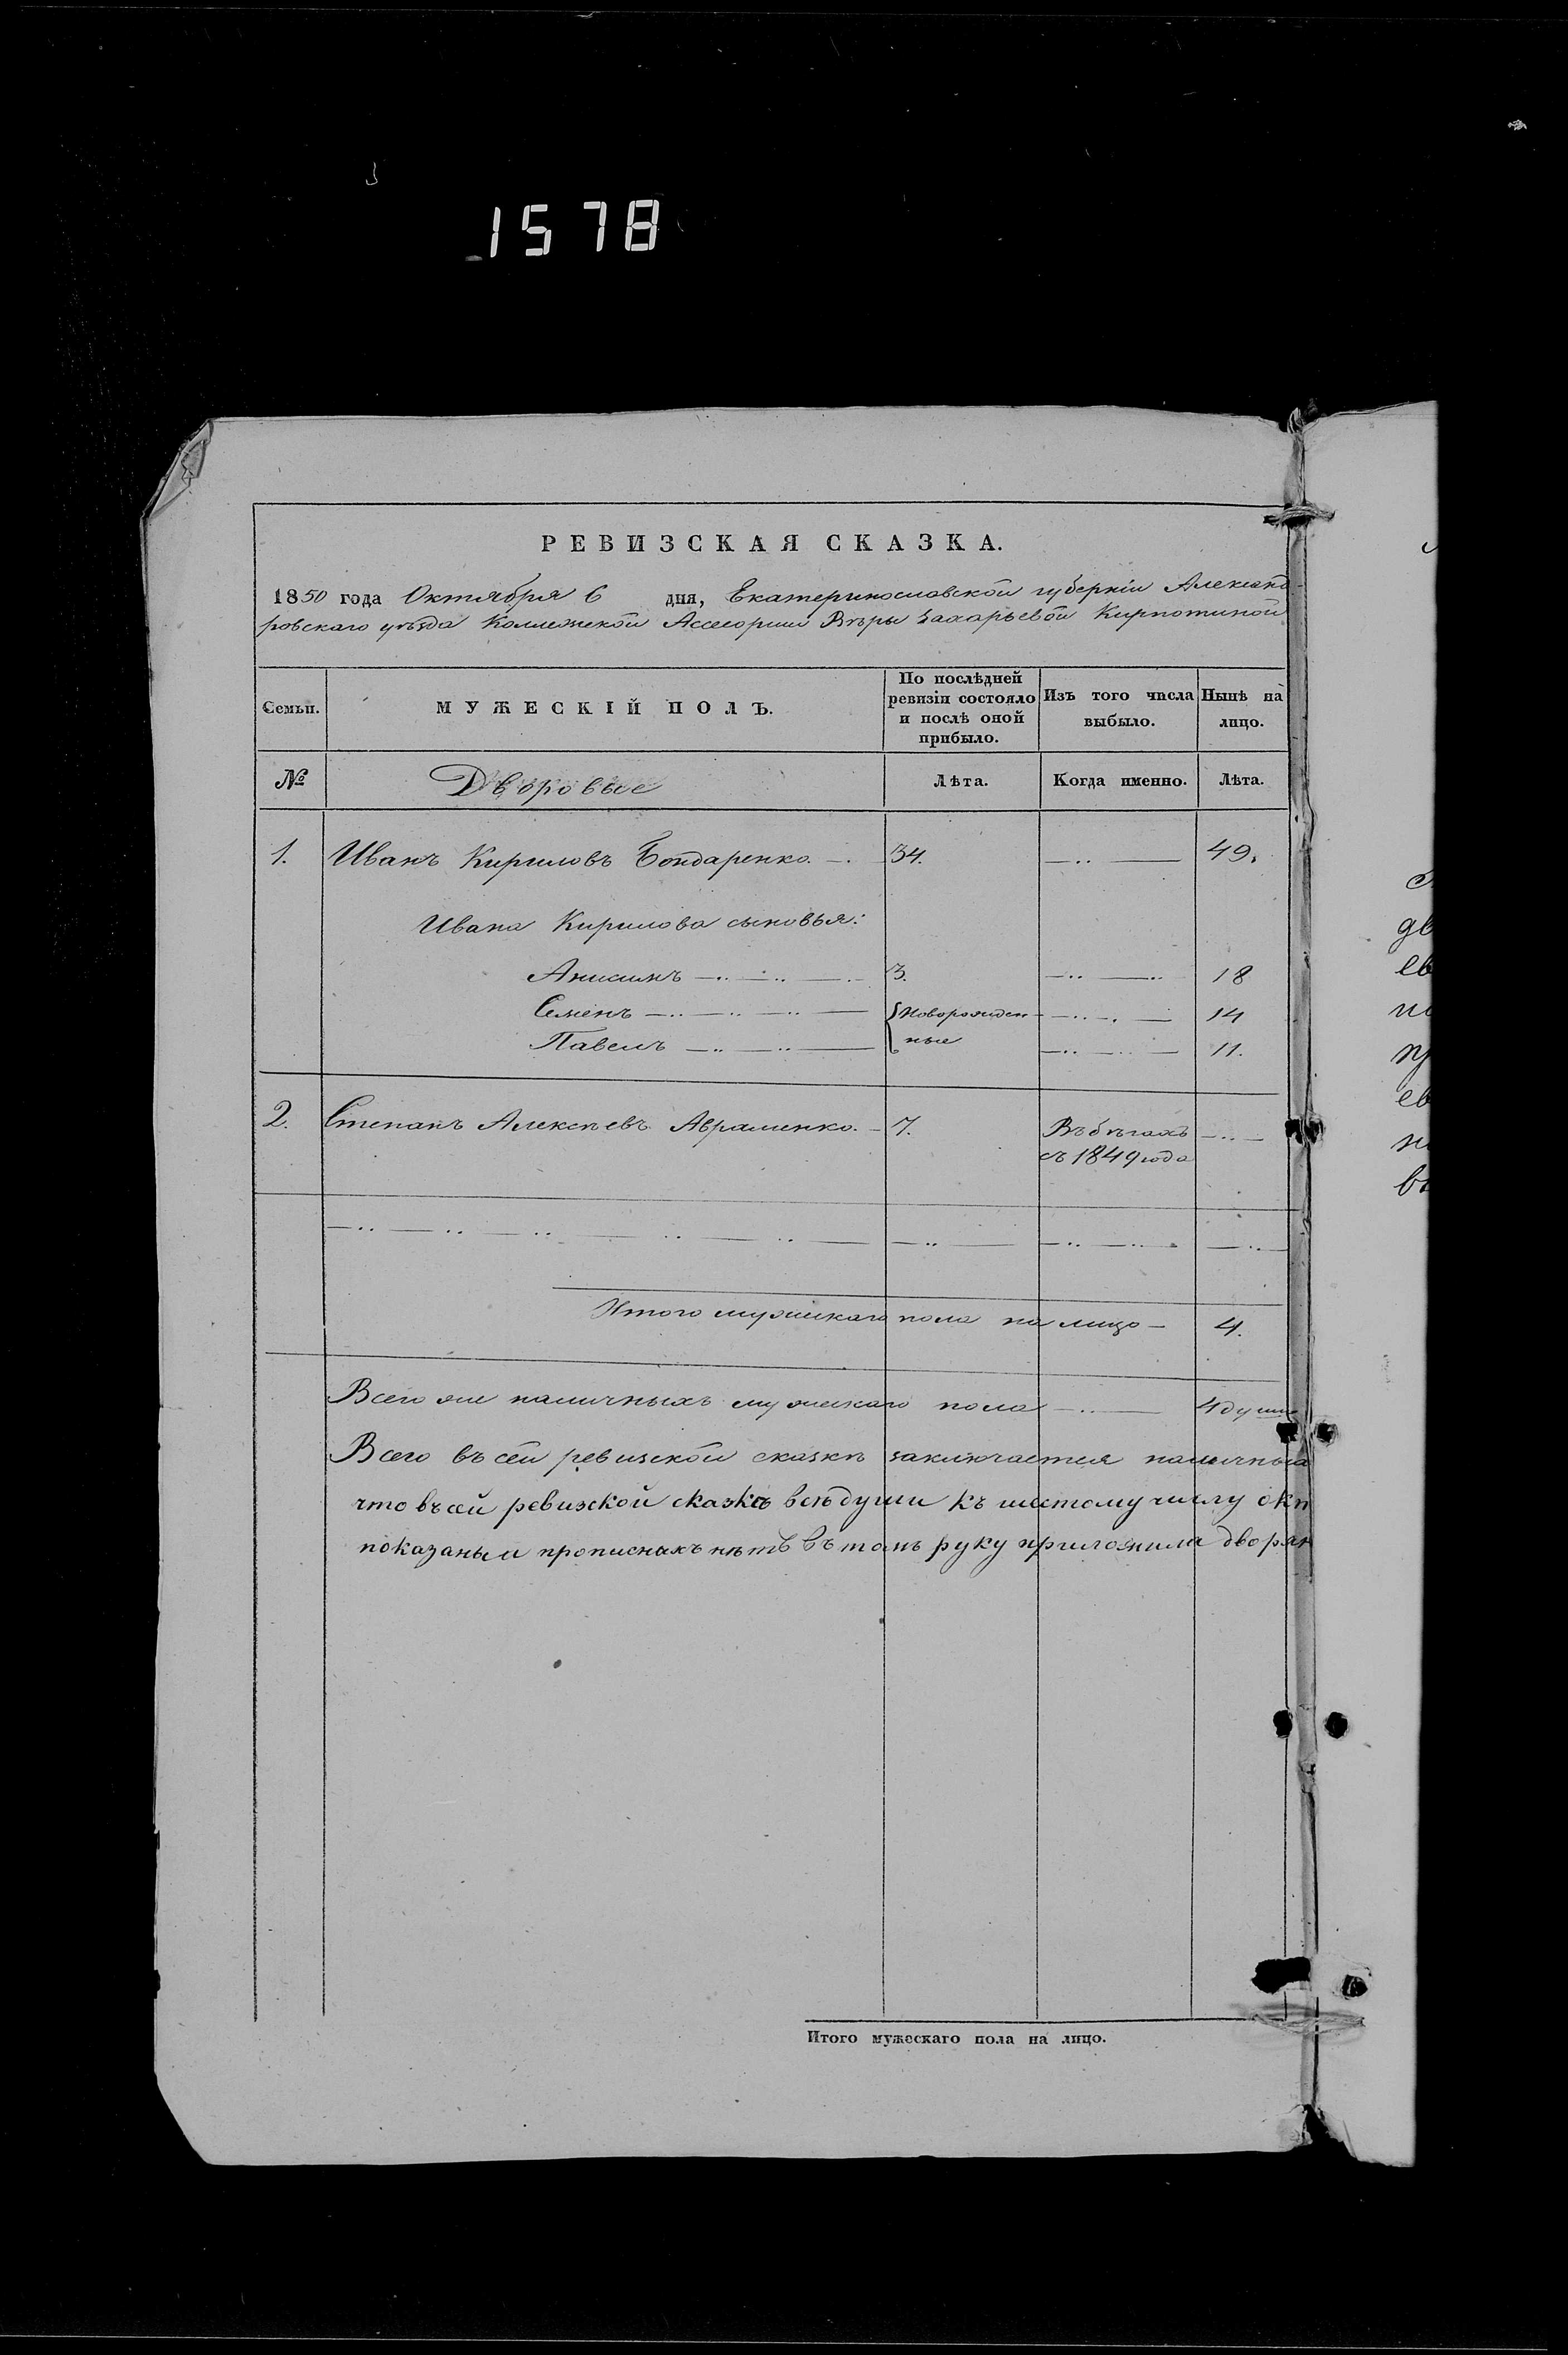 1578
РЕВИЗСКАЯ СКАЗКА.
1850 года Октября 6 дня, Екатеринославской губерніи Александ-
ровскаго уѣзда Коллежской Ассесорши Вѣры Захарьевой Кирпотиной
Семьи. МУЖЕСКІЙ ПОЛЪ. По послѣдней ревизіи состояло и послѣ оной прибыло. Изъ того числа выбыло. Нынѣ на лицо.
№ Дворовые Лѣта. Когда именно. Лѣта.
1. Иванъ Кириловъ Бондаренко. — . 34. — .. — 49.
Ивана Кирилова сыновья:
Анисимъ — .. — .. — 3. — .. — .. 18
Семенъ — .. — .. — .. — Новорожден- — .. — . — 14
Павелъ — .. — .. — ные — .. — .. — 11.
2. Степанъ Алексѣевъ Авраменко. — 7. Въ бѣгахъ — .. —
съ 1849 года
— .. — .. — .. — .. — .. — — .. — — .. — .. — — .. —
Итого мужескаго пола на лицо — 4.
Всего же наличныхъ мужескаго пола — .. — 4 души
Всего въ сей ревизской сказкѣ заключается наличныхъ
что въ сей ревизской сказкѣ всѣ души къ шестому числу окт
показаны и прописныхъ нѣтъ въ томъ руку приложила дворян
Итого мужескаго пола на лицо.
дв
ев
пр
ев